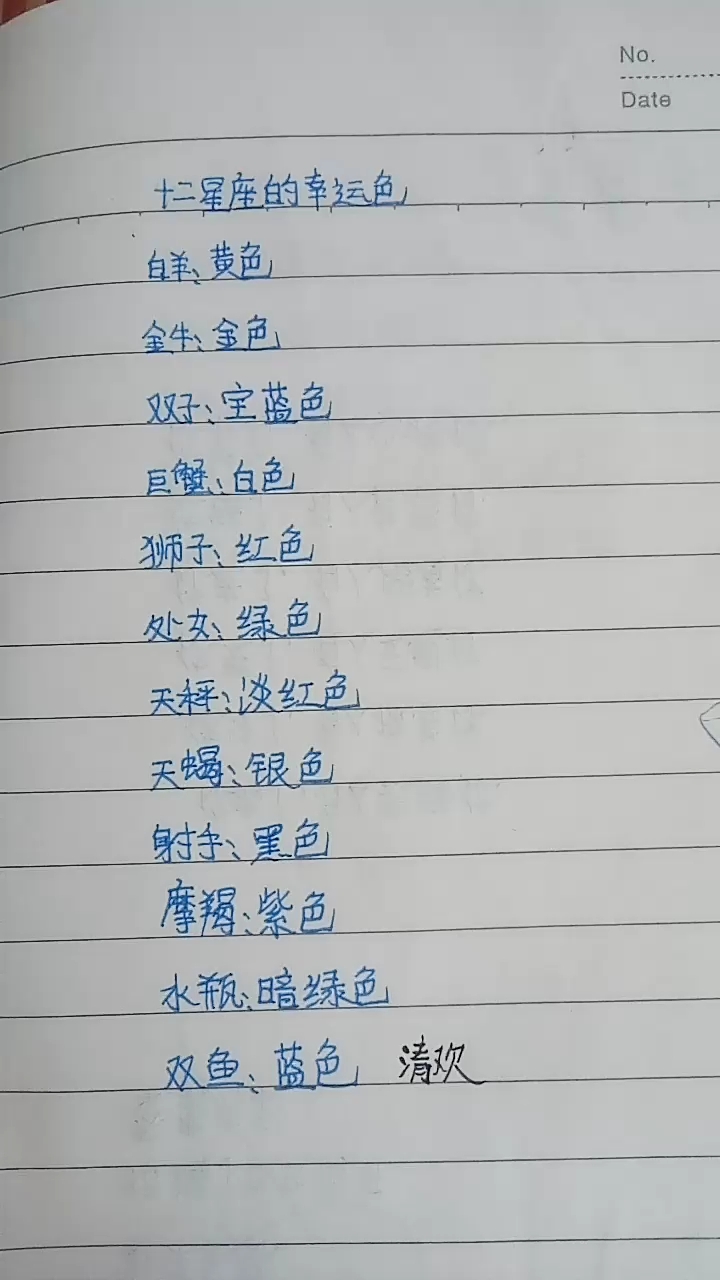 No.
Date
十二星座的幸运色
白羊:黄色
金牛:金色
双子:宝蓝色
巨蟹:白色
狮子:红色
处女:绿色
天秤:淡红色
天蝎:银色
射手:黑色
摩羯:紫色
水瓶:暗绿色
双鱼:蓝色 清欢